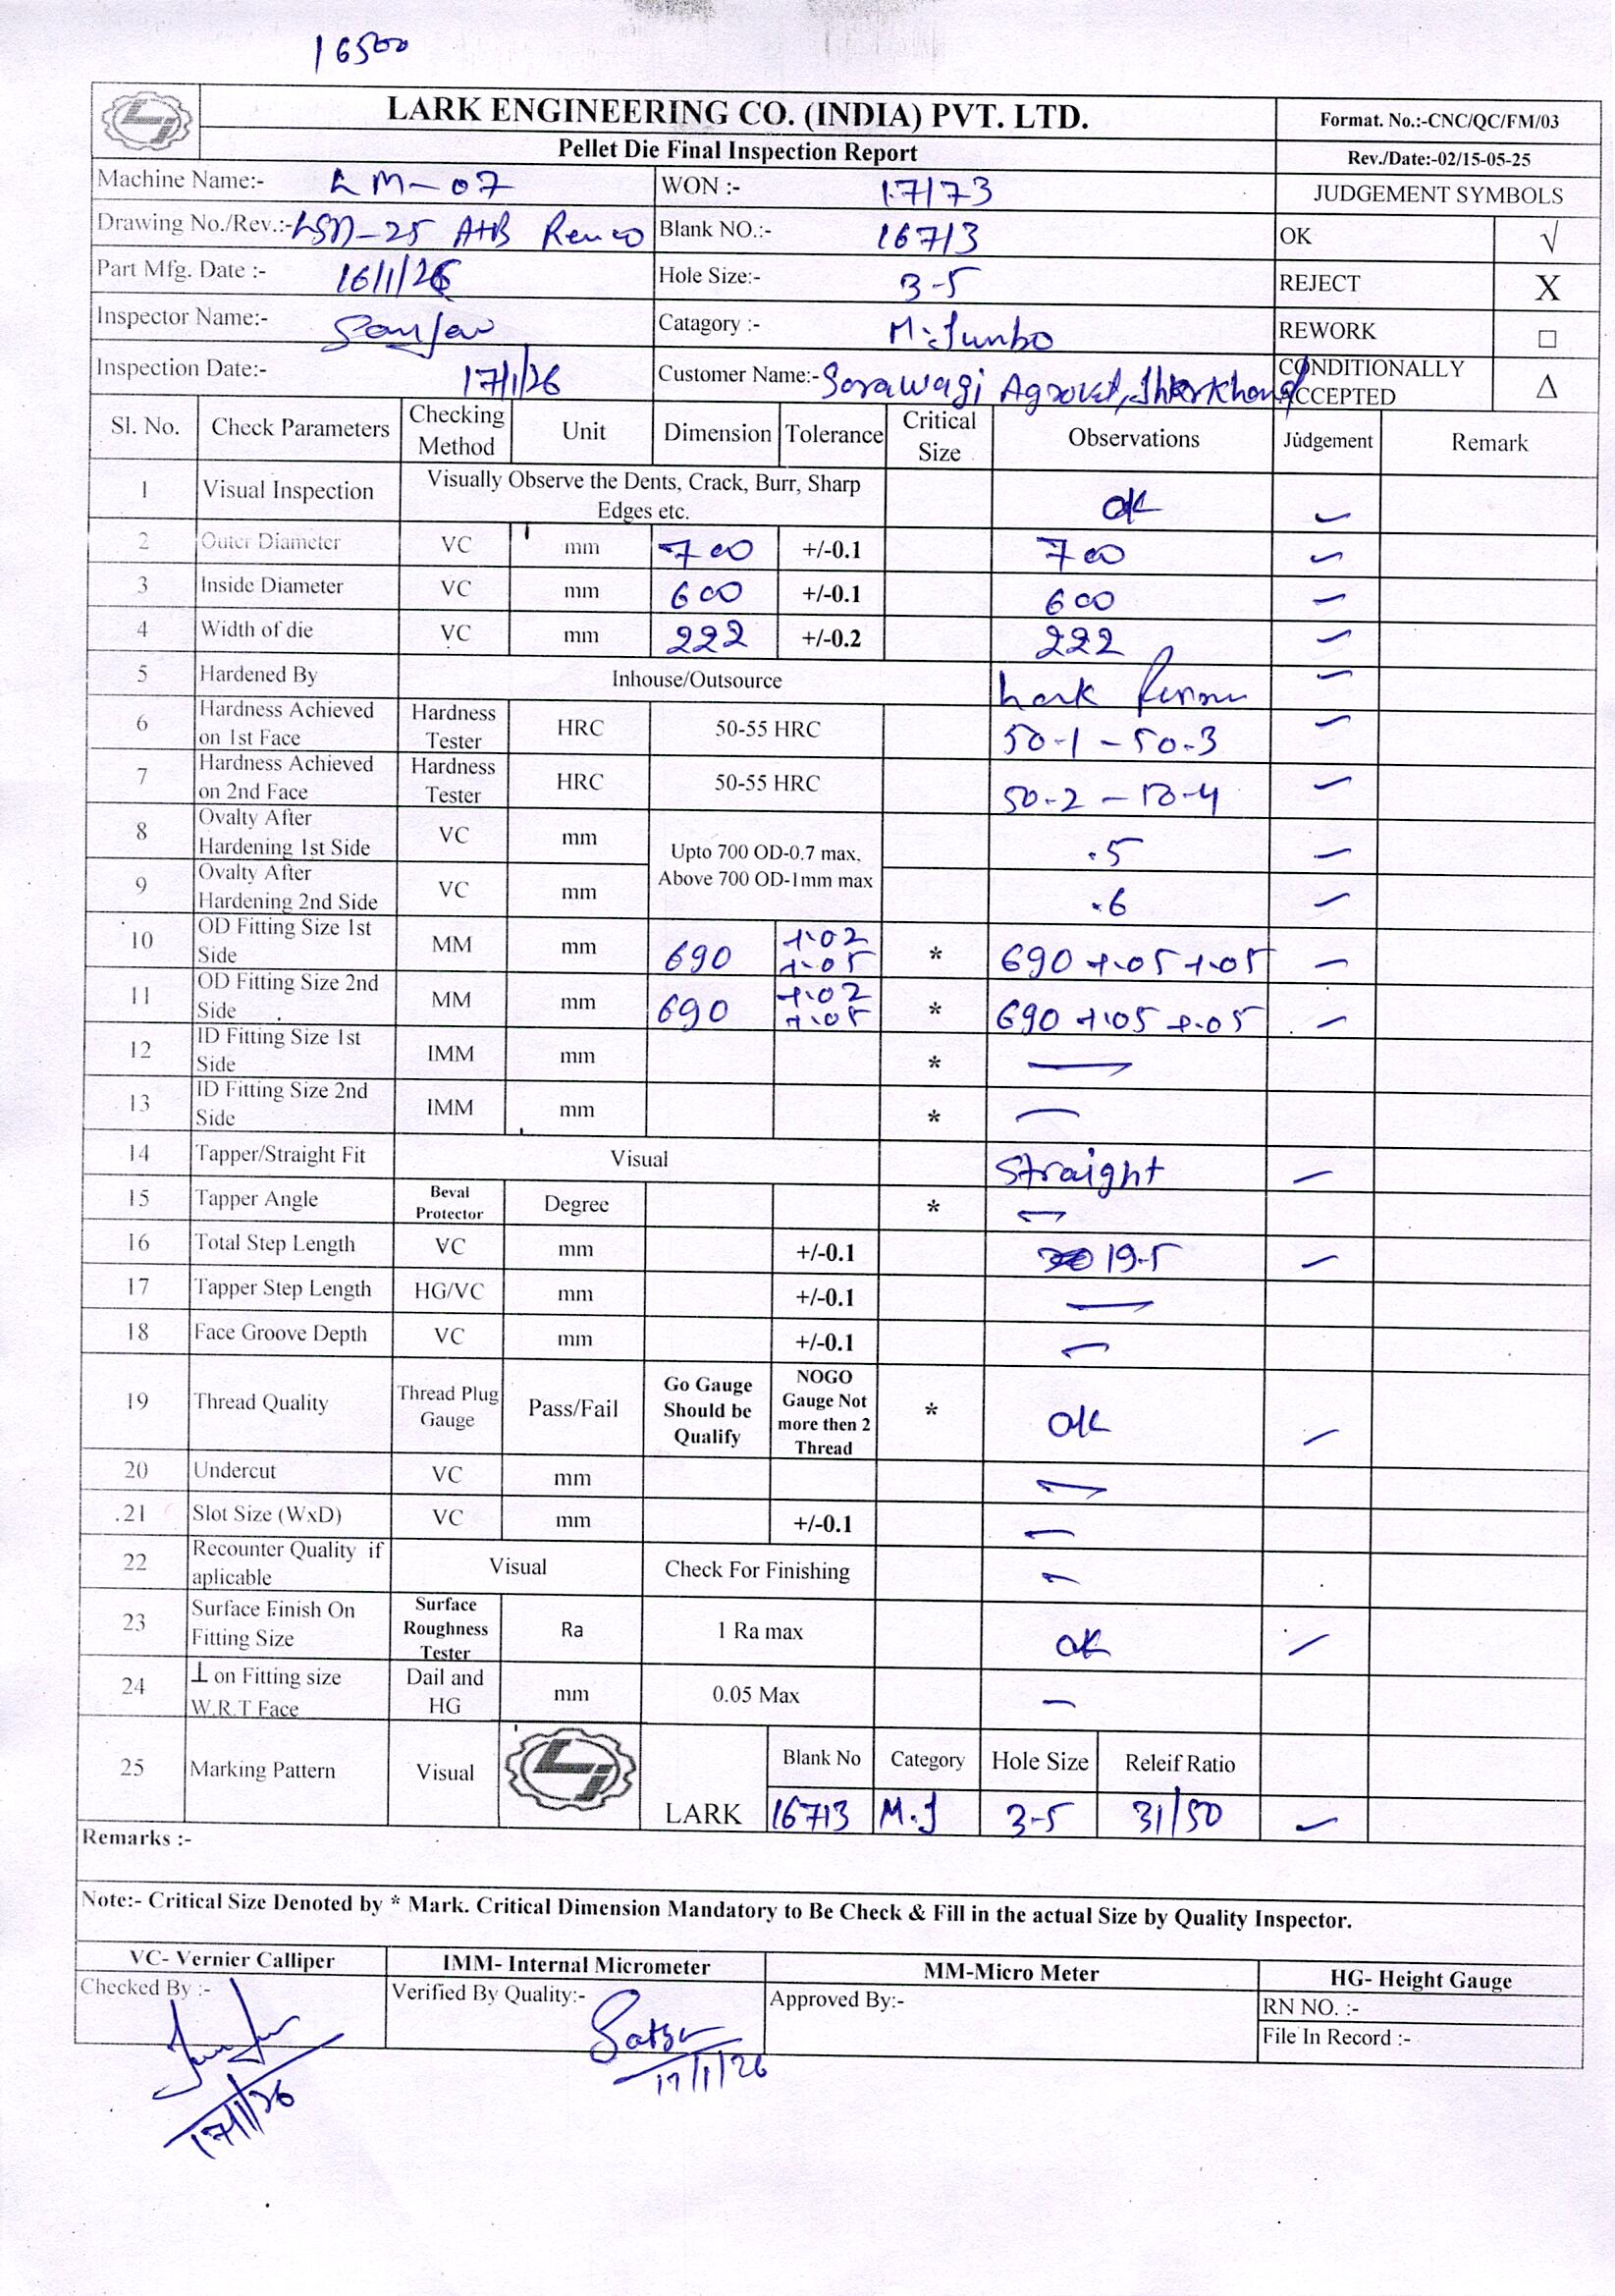 16500
LARK ENGINEERING CO. (INDIA) PVT. LTD.
Format. No.:-CNC/QC/FM/03
Pellet Die Final Inspection Report
Rev./Date:-02/15-05-25
Machine Name:- LM-07 WON :- 17173 JUDGEMENT SYMBOLS
Drawing No./Rev.:- LSD-25 A+B Blank NO.:- 16713 OK √
Part Mfg. Date :- 16/1/26 Hole Size:- 3-5 REJECT X
Inspector Name:- Catagory :- M.Jumbo REWORK □
Inspection Date:- 17/1/26 Customer Name:- Sarawagi Agrovet, Jharkhand CONDITIONALLY ACCEPTED Δ
Sl. No. Check Parameters Checking Method Unit Dimension Tolerance Critical Size Observations Judgement Remark
1 Visual Inspection Visually Observe the Dents, Crack, Burr, Sharp Edges etc. ok
2 Outer Diameter VC mm 700 +/-0.1 700
3 Inside Diameter VC mm 600 +/-0.1 600
4 Width of die VC mm 222 +/-0.2 222
5 Hardened By Inhouse/Outsource Lark
6 Hardness Achieved on 1st Face Hardness Tester HRC 50-55 HRC 50-1 - 50-3
7 Hardness Achieved on 2nd Face Hardness Tester HRC 50-55 HRC 50-2 - 50-4
8 Ovalty After Hardening 1st Side VC mm Upto 700 OD-0.7 max, Above 700 OD-1mm max .5
9 Ovalty After Hardening 2nd Side VC mm .6
10 OD Fitting Size 1st Side MM mm 690 +.02 +.05 * 690 +.05 +.05
11 OD Fitting Size 2nd Side MM mm 690 +.02 +.05 * 690 +.05 +.05
12 ID Fitting Size 1st Side IMM mm *
13 ID Fitting Size 2nd Side IMM mm *
14 Tapper/Straight Fit Visual Straight
15 Tapper Angle Beval Protector Degree *
16 Total Step Length VC mm +/-0.1 19.5
17 Tapper Step Length HG/VC mm +/-0.1
18 Face Groove Depth VC mm +/-0.1
19 Thread Quality Thread Plug Gauge Pass/Fail Go Gauge Should be Qualify NOGO Gauge Not more then 2 Thread * ok
20 Undercut VC mm
.21 Slot Size (WxD) VC mm +/-0.1
22 Recounter Quality if aplicable Visual Check For Finishing
23 Surface Finish On Fitting Size Surface Roughness Tester Ra 1 Ra max ok
24 ⊥ on Fitting size W.R.T Face Dail and HG mm 0.05 Max
25 Marking Pattern Visual LARK Blank No Category Hole Size Releif Ratio
16713 M.J 3-5 31/50
Remarks :-
Note:- Critical Size Denoted by * Mark. Critical Dimension Mandatory to Be Check & Fill in the actual Size by Quality Inspector.
VC- Vernier Calliper IMM- Internal Micrometer MM-Micro Meter HG- Height Gauge
Checked By :- Verified By Quality:- Approved By:- RN NO. :-
File In Record :-
17/1/26
17/1/26